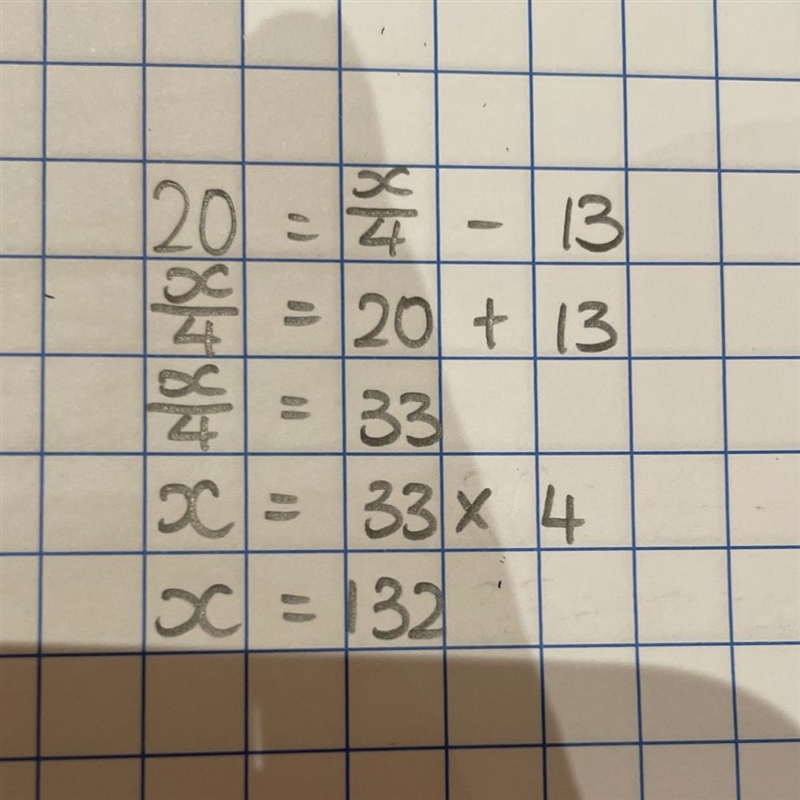 20 = x/4 - 13
x/4 = 20 + 13
x/4 = 33
x = 33 × 4
x = 132